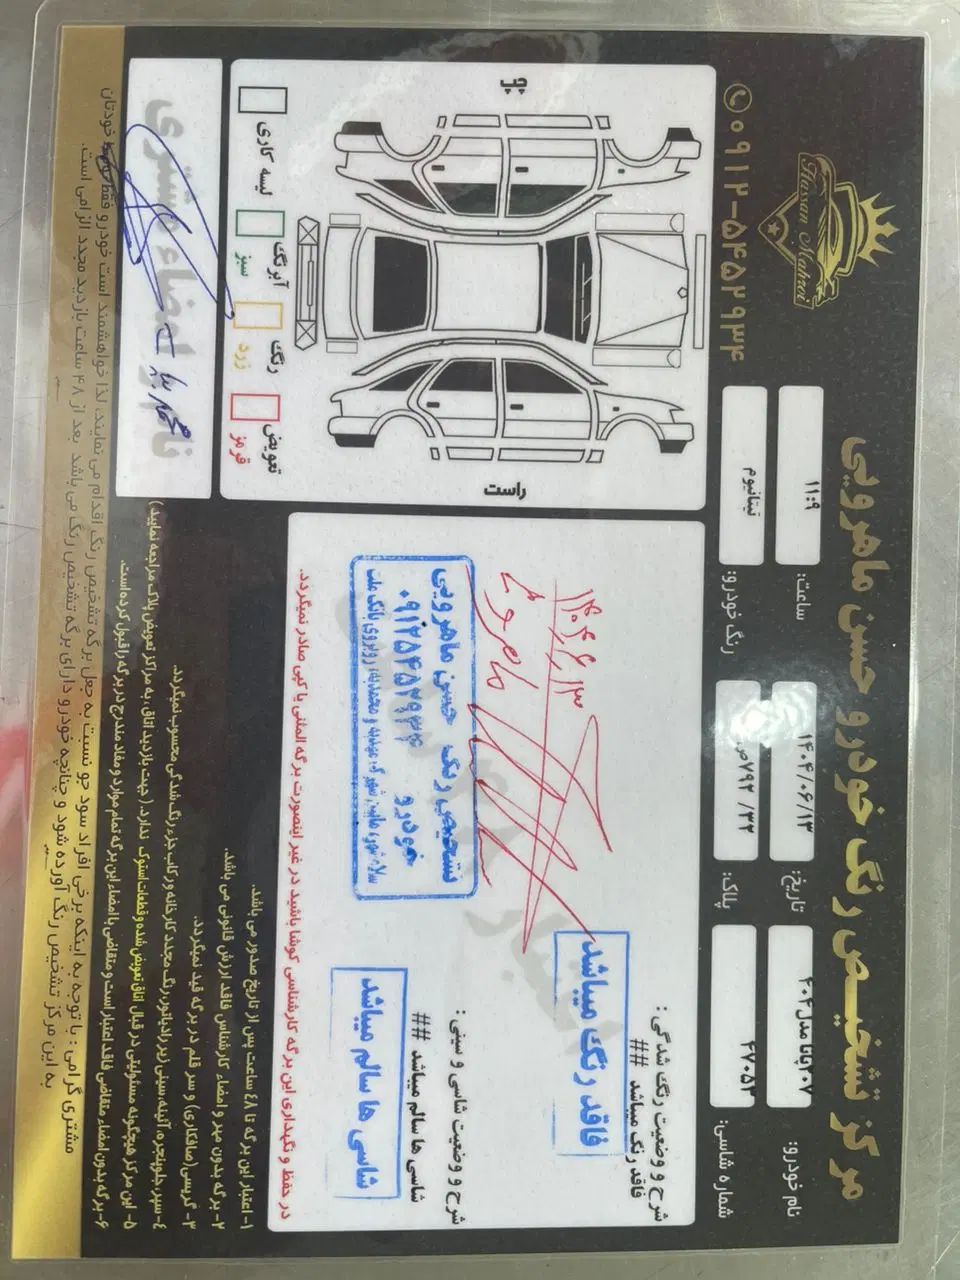 مرکز تشخیص رنگ خودرو حسن ماهرویی
Hassan Mahroei
۰۹۱۲-۵۴۵۲۹۳۴
نام خودرو: ۲۰۷پانا مدل۴۰۴
تاریخ: ۱۴۰۴/۰۶/۱۳
ساعت: ۱۱:۹
شماره شاسی: ۴۷۰۵۳
پلاک: ۳۲/ ۷۹۲ص
رنگ خودرو: تیتانیوم
شرح و وضعیت رنگ شدگی:
فاقد رنگ میباشد ##
فاقد رنگ میباشد
شرح و وضعیت شاسی و سینی:
شاسی ها سالم میباشد ##
شاسی ها سالم میباشد
۱۴۰۴,۶,۱۳
تشخیص رنگ حسن ماهرویی
خودرو ۰۹۱۲۵۴۵۲۹۳۴
در حفظ و نگهداری این برگه کارشناسی کوشا باشید در غیر اینصورت برگه المثنی یا کپی صادر نمیگردد.
چپ
راست
لیسه کاری
آبرنگ
سبز
رنگ
زرد
تعویض
قرمز
نام و امضاء مشتری
۱- اعتبار این برگه تا ۴۸ ساعت پس از تاریخ صدور می باشد.
۲- برگه بدون مهر و امضاء کارشناس فاقد ارزش قانونی می باشد.
۳- گریسی(صافکاری) و سر قلم در برگه قید نمیگردد.
۴- سپر، جلوپنجره، آئینه، سینی زیر رادیاتور، رنگ مجدد کارخانه و رکاب جزء رنگ شدگی محسوب نمیگردد.
۵- این مرکز هیچگونه مسئولیتی در قبال اتاق تعویض شده و قطعات استوک ندارد. (جهت بازدید اتاق، به مراکز تعویض پلاک مراجعه نمایید)
۶- برگه بدون امضاء متقاضی فاقد اعتبار است و متقاضی با امضاء این برگه تمام موارد و مفاد مندرج در برگه را قبول کرده است.
مشتری گرامی: با توجه به اینکه برخی افراد سود جو نسبت به جعل برگه تشخیص رنگ اقدام می نمایند، لذا خواهشمند است خودرو فقط خودتان
به این مرکز تشخیص رنگ آورده شود و چنانچه خودرو دارای برگه تشخیص رنگ می باشد بعد از ۴۸ ساعت بازدید مجدد الزامی است.